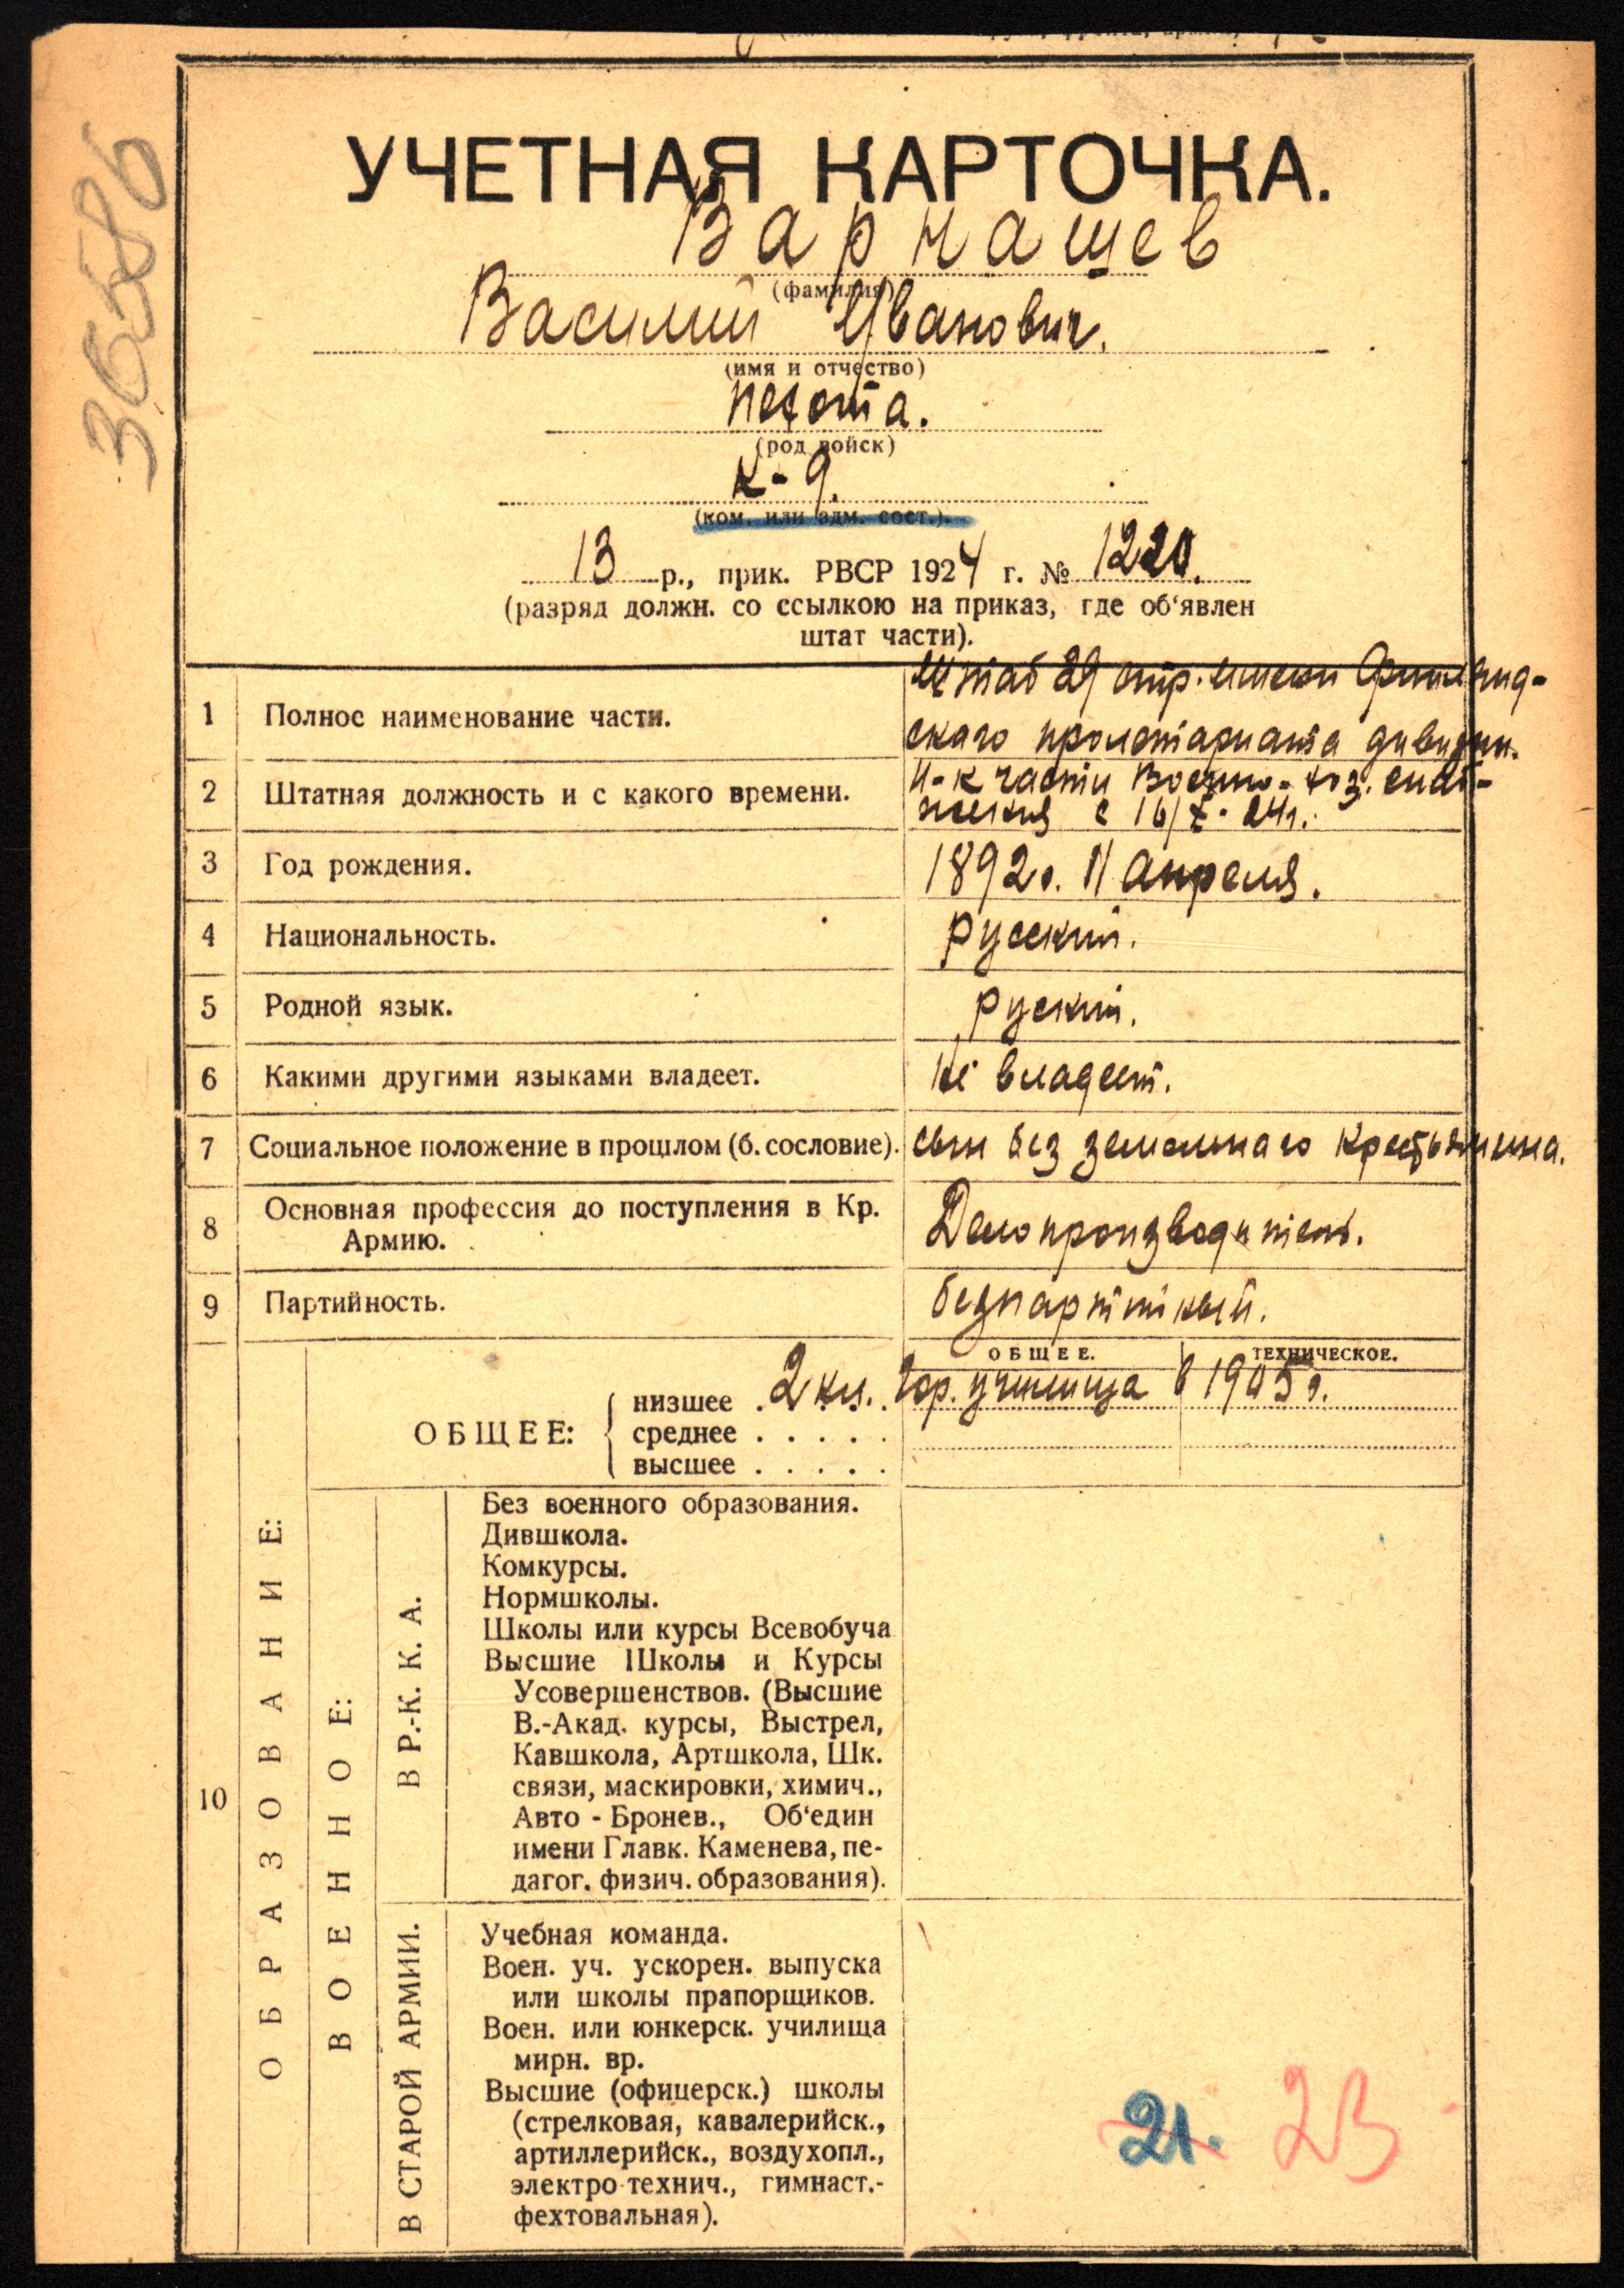 УЧЕТНАЯ КАРТОЧКА.
Варнашев
(фамилия)
Василий Иванович.
(имя и отчество)
пехота.
(род войск)
К-9.
(ком. или адм. сост.).
13 р., прик. РВСР 1924 г. № 1220.
(разряд должн. со ссылкою на приказ, где об‘явлен
штат части).
1 Полное наименование части.
Штаб 29 стр. имени Финлянд-
ского пролетариата дивизии.
2 Штатная должность и с какого времени.
Н-к части Военно-хоз. снаб-
жения с 16/X-24г.
3 Год рождения.
1892г. 11 апреля.
4 Национальность.
русский.
5 Родной язык.
руский.
6 Какими другими языками владеет.
Не владеет.
7 Социальное положение в прошлом (б. сословие).
сын без земельнаго крестьянина.
8 Основная профессия до поступления в Кр.
Армию.
Делопроизводитель.
9 Партийность.
безпартийный.
10
ОБРАЗОВАНИЕ:
ОБЩЕЕ. ТЕХНИЧЕСКОЕ.
ОБЩЕЕ:
низшее . 2 кл. Гор. училища в 1905г.
среднее . . . . .
высшее . . . . .
ВОЕННОЕ:
В Р.-К. К. А.
Без военного образования.
Дившкола.
Комкурсы.
Нормшколы.
Школы или курсы Всевобуча
Высшие Школы и Курсы
Усовершенствов. (Высшие
В.-Акад. курсы, Выстрел,
Кавшкола, Артшкола, Шк.
связи, маскировки, химич.,
Авто - Бронев., Об‘един
имени Главк. Каменева, пе-
дагог. физич. образования).
В СТАРОЙ АРМИИ.
Учебная команда.
Воен. уч. ускорен. выпуска
или школы прапорщиков.
Воен. или юнкерск. училища
мирн. вр.
Высшие (офицерск.) школы
(стрелковая, кавалерийск.,
артиллерийск., воздухопл.,
электро-технич., гимнаст.-
фехтовальная).
21. 23